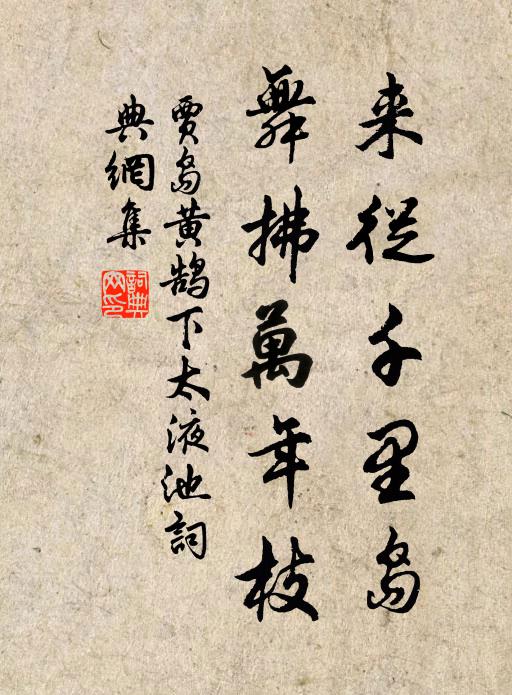 来從千里島
舞拂萬年枝
賈島黄鵠下太液池詞
典網集
詞典网印